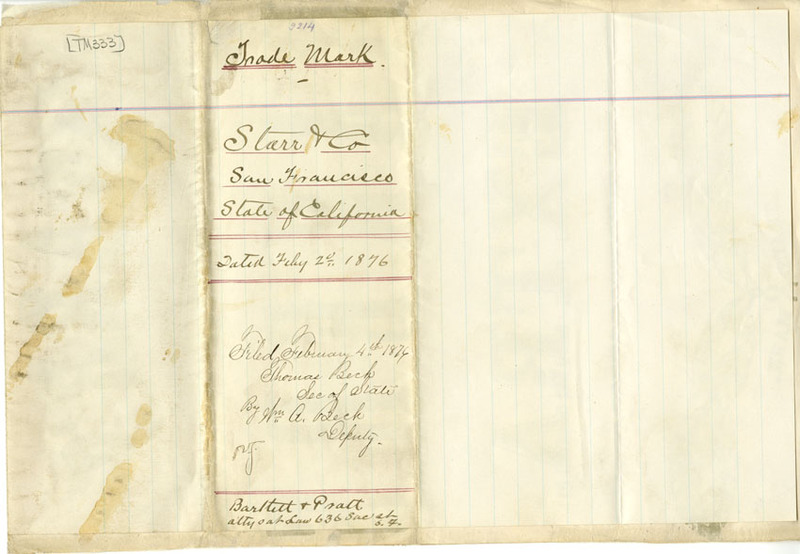 [TM333]
3214
Trade Mark.
Starr & Co
San Francisco
State of California
Dated Feby 2d. 1876
Filed February 4th 1876
Thomas Beck
Sec of State
By Wm A. Beck
Deputy.
Bartlett & Pratt
attys at Law 636 Sac st
S. F.